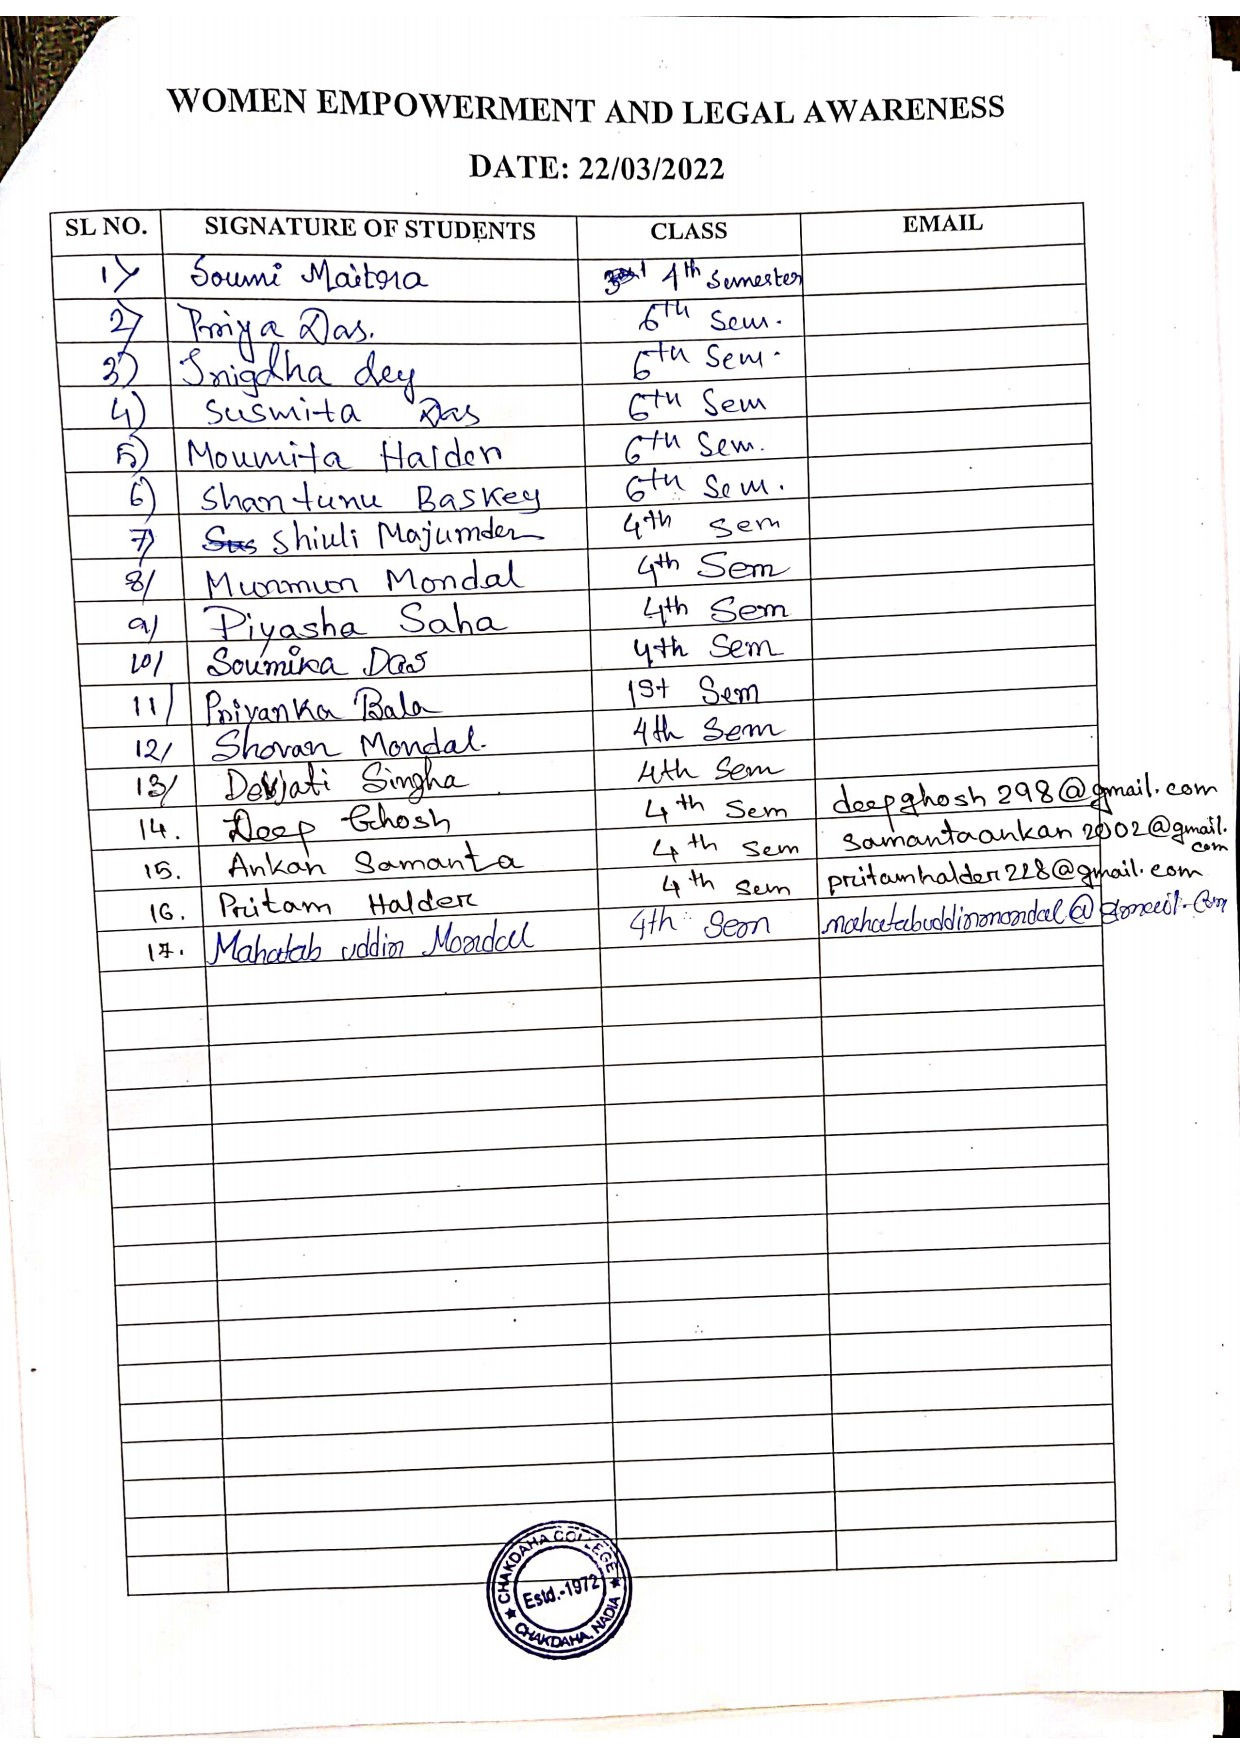 WOMEN EMPOWERMENT AND LEGAL AWARENESS
DATE: 22/03/2022
SL NO. SIGNATURE OF STUDENTS CLASS EMAIL
1) Soumi Maitra 4th Semester
2) Priya Das. 6th Sem.
3) Snigdha dey 6th Sem.
4) Susmita Das 6th Sem
5) Moumita Halder 6th Sem.
6) Shantunu Baskey 6th Sem.
7) Shiuli Majumder 4th Sem
8/ Munmun Mondal 4th Sem
9/ Piyasha Saha 4th Sem
10/ Soumika Das 4th Sem
11/ Priyanka Bala 1st Sem
12/ Shovan Mondal. 4th Sem
13/ Devjati Singha 4th Sem
14. Deep Ghosh 4th Sem deepghosh298@gmail.com
15. Ankan Samanta 4th Sem samantaankan2002@gmail.
com
16. Pritam Halder 4th Sem pritamhalder228@gmail.com
17. Mahatab uddin Mondal 4th Sem mahatabuddinmondal@gmail.com
CHAKDAHA COLLEGE
Estd.-1972
CHAKDAHA, NADIA